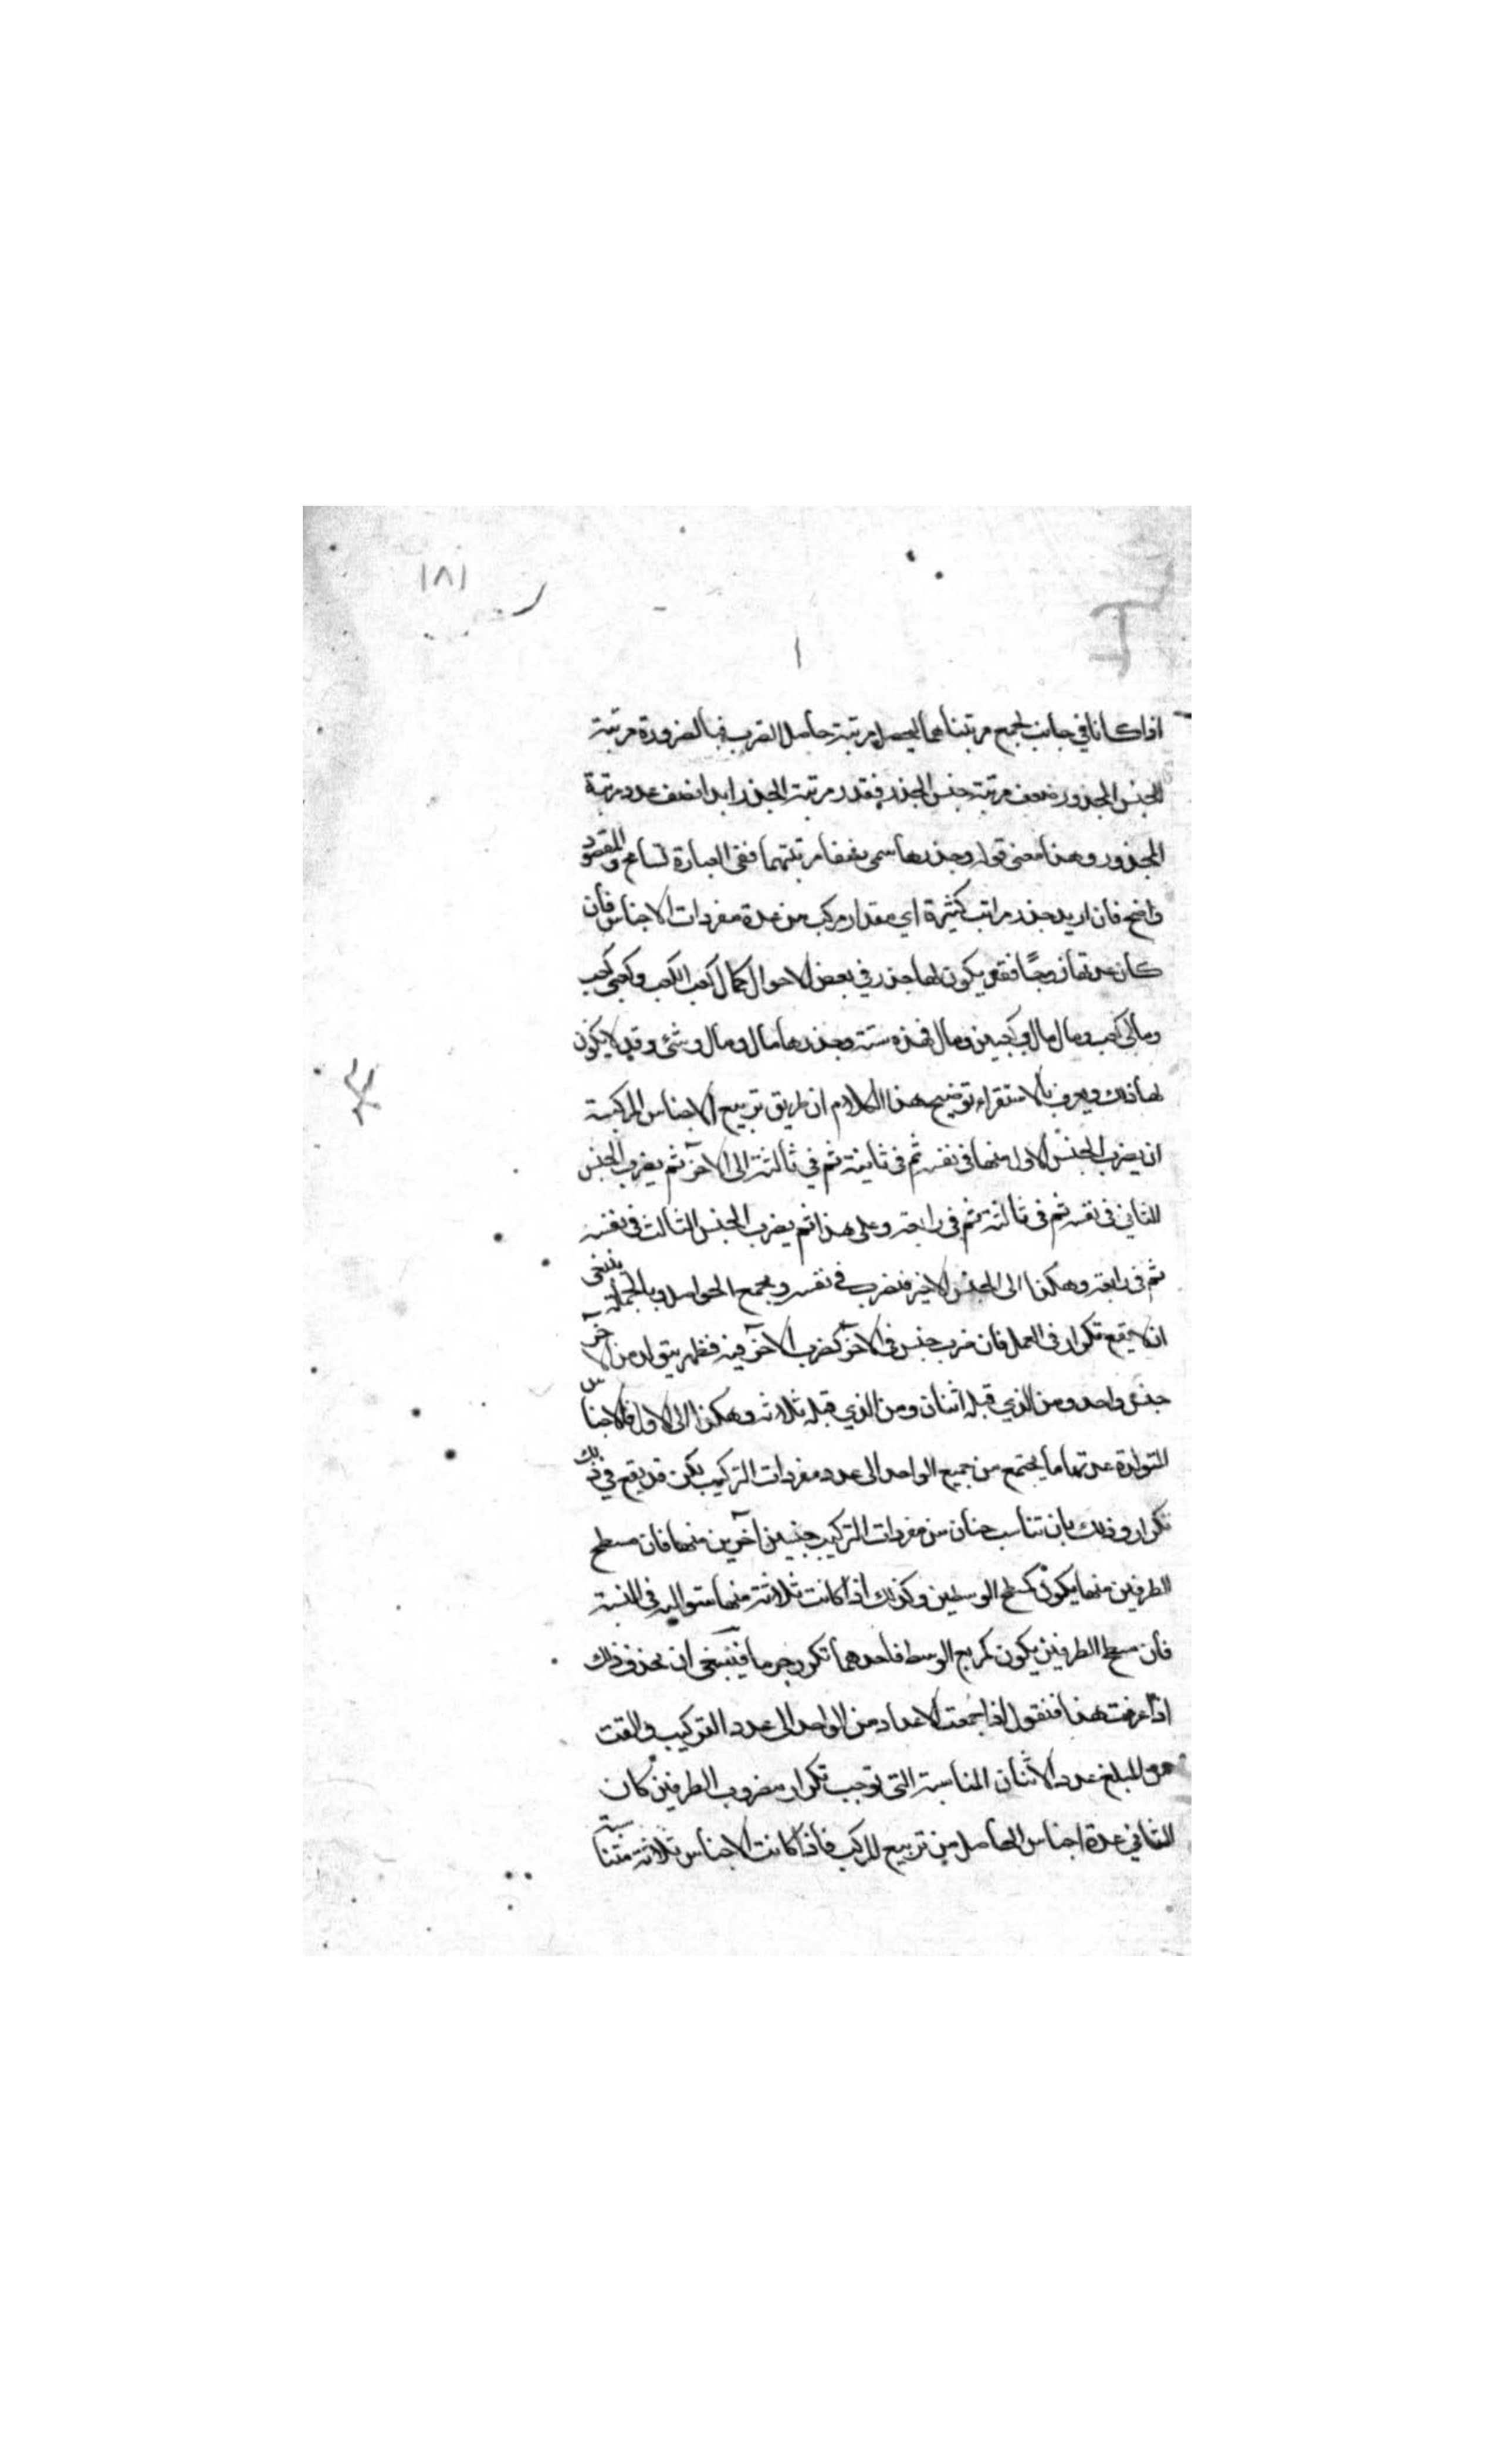 ١٨١
١
اذا كانا في جانب يجمع مرتبتاهما ليحصل مرتبة حاصل الضرب فبالضرورة مرتبة
الجنس المجذور ضعف مرتبة جنس الجذر فعدد مرتبة الجذر ابدا نصف عدد مرتبة
المجذور وهذا معنى قوله وجذرها سمى نصفا مرتبتهما ففي العبارة تسامح والمقصود
واضح فان اريد جذر مراتب كثيرة اي مقدار مركب من عدة مفردات الاجناس فان
كان عدتها زوجًا فقد يكون لها جذر في بعض الاحوال كمال كعب الكعب وكعبي كعب
ومالي كعب ومال مال وكعبين ومال فهذه ستة وجذرها مال ومال وشئ وقد لا يكون
لها ذلك ويعرف بالاستقراء توضيح هذا الكلام ان طريق تربيع الاجناس المركبة
ان يضرب الجنس الاول منها في نفسه ثم في ثانية ثم في ثالثة الى الآخر ثم يضرب الجنس
الثاني في نفسه ثم في ثالثة ثم في رابعة وعلى هذا ثم يضرب الجنس الثالث في نفسه
ثم في رابعة وهكذا الى الجنس الاخير فتضرب في نفسه ويجمع الحواصل وبالجملة ينبغي
ان لا يقع تكرار في العمل فان ضرب جنس في الآخر كضرب الآخر فيه فظهر يتولد من الآخر
جنس واحد ومن الذي قبله اثنان ومن الذي قبله ثلاثة وهكذا الى الاول فالاجناس
المتولدة عدتها ما يجتمع من جميع الواحد الى عدد مفردات التركيب لكن قد يقع في ذلك
تكرار وذلك بان تناسب جنسان من مفردات التركيب جنسين آخرين منها فان مسطح
الطرفين منها يكون كمسطح الوسطين وكذلك اذا كانت ثلاثة منها متوالية في النسبة
فان مسطح الطرفين يكون كمربع الوسط فاحدهما تكرر فينبغي ان يحذف ذلك
اذا عرفت هذا فنقول اذا جمعت الاعداد من الواحد الى عدد التركيب والقيت
من المبلغ عدد الاثنان المناسبة التي توجب تكرار مضروب الطرفين كان
الثاني عدة اجناس الحاصل من تربيع المركب فاذا كانت الاجناس ثلاثة متناسبة